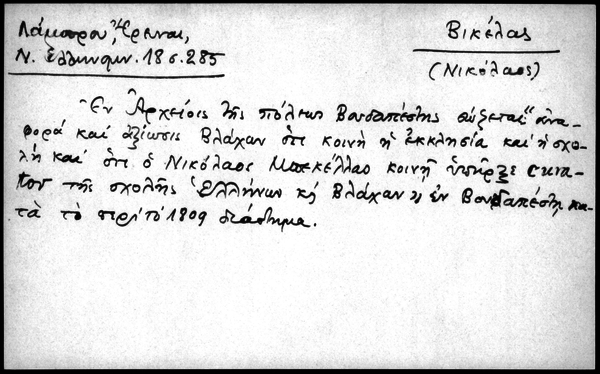 Λάμπρου, Ἔρευναι,
Ν. Ἑλληνομν. 18 σ. 285
Βικέλας
(Νικόλαος)
Ἐν Ἀρχείοις τῆς πόλεως Βουδαπέστης σώζεται "ἀνα-
φορά καὶ ἀξίωσις Βλάχων ὅτι κοινὴ ἡ ἐκκλησία καὶ ἡ σχο-
λὴ καὶ ὅτι ὁ Νικόλαος Μπεκέλλας κοινῇ ὑπῆρξε
τῆς σχολῆς Ἑλλήνων κ̀ Βλάχων" ἐν Βουδαπέστῃ κα-
τὰ τὸ περὶ τὸ 1809 διάστημα.